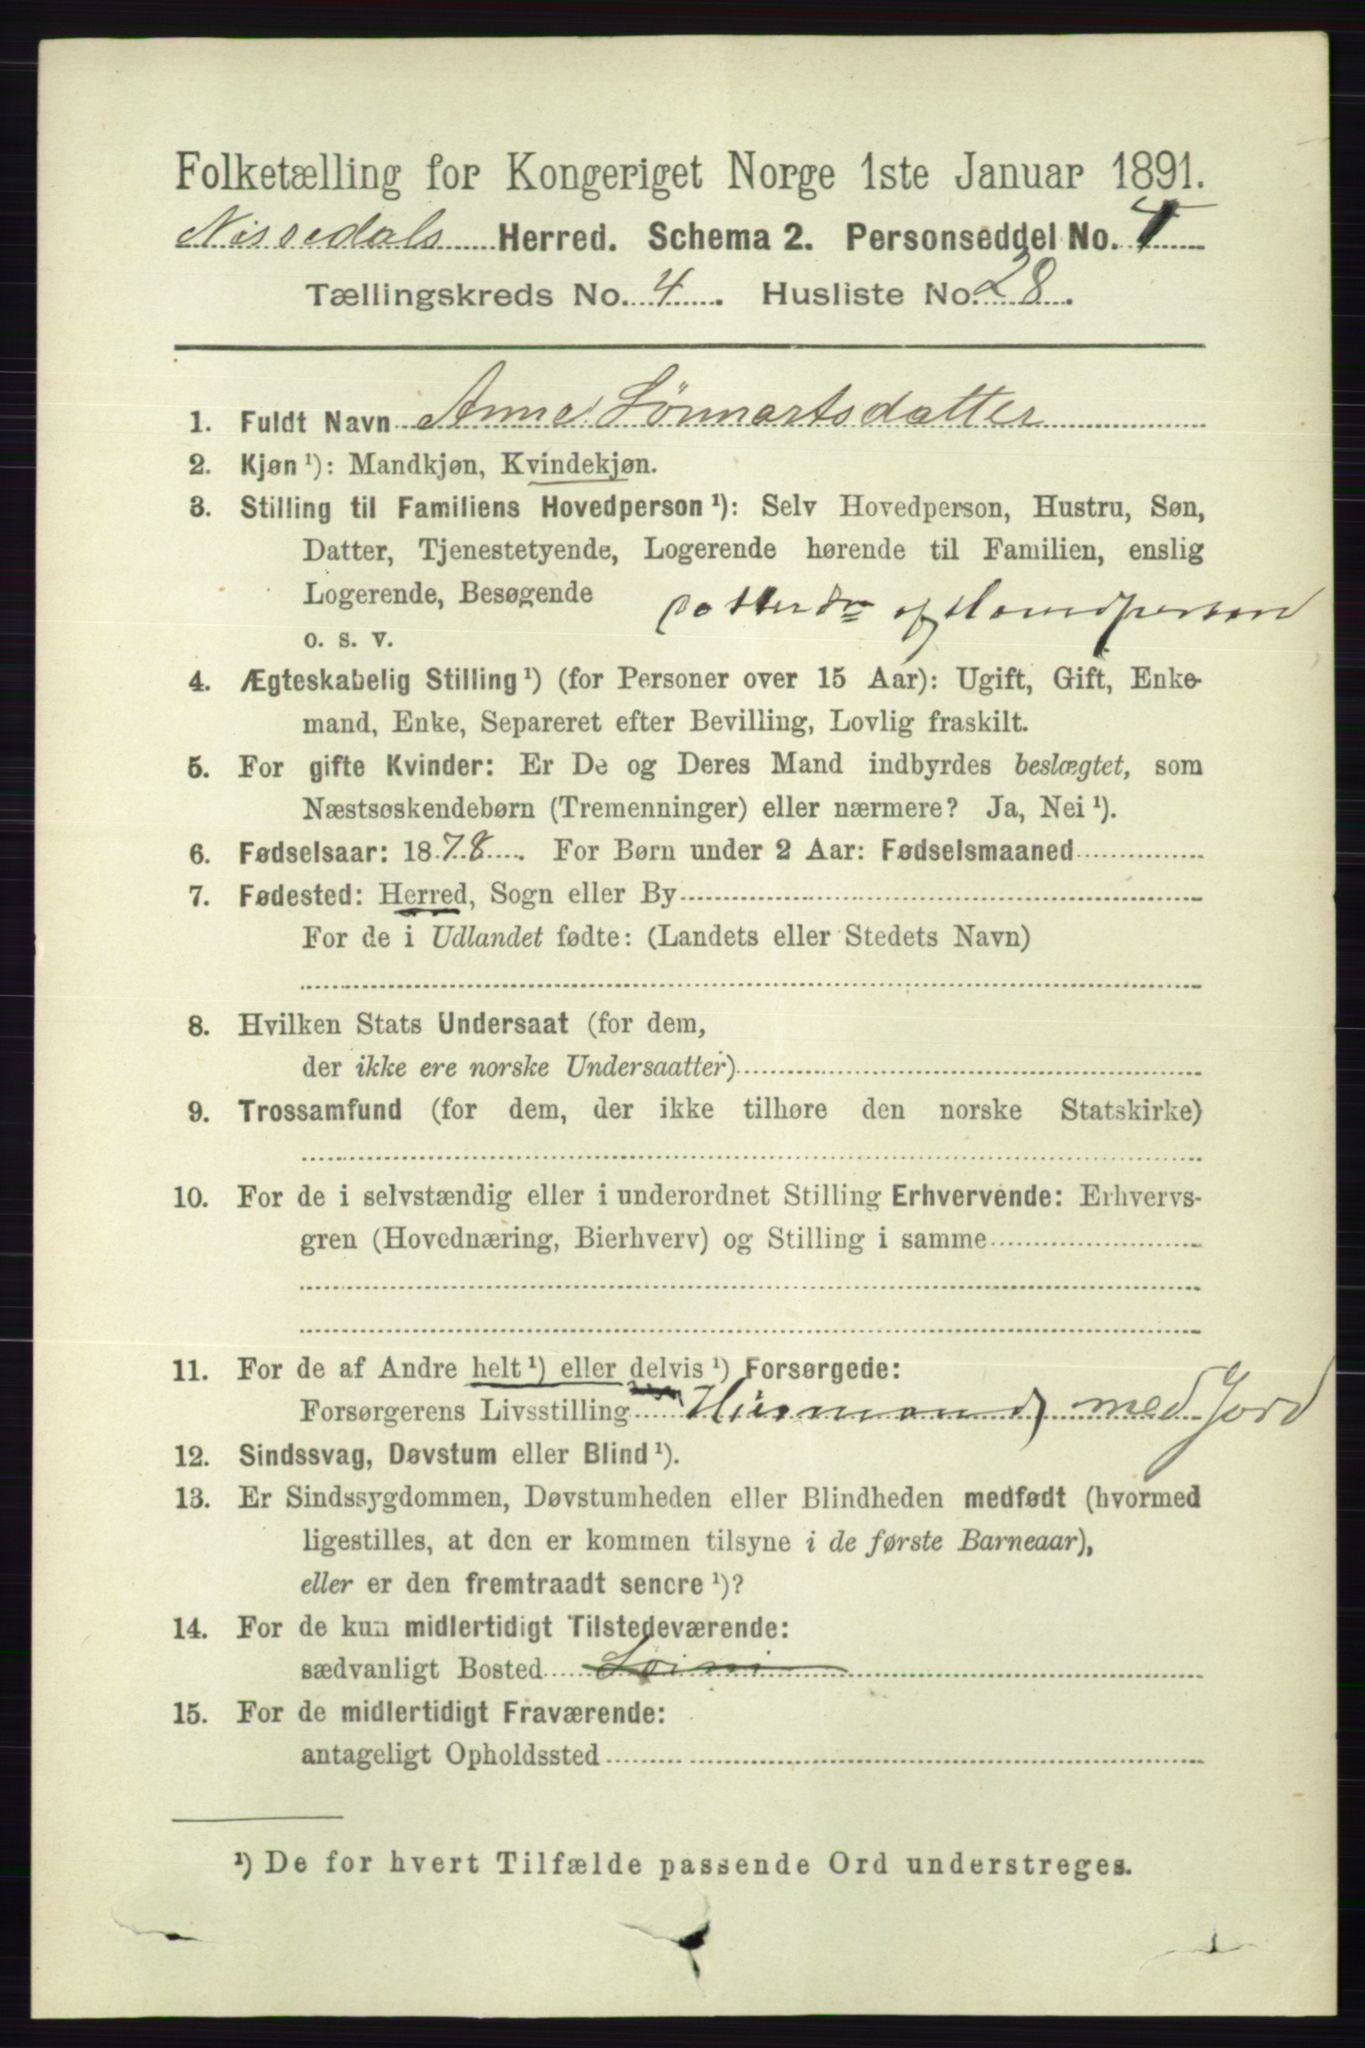 Folketælling for Kongeriget Norge 1ste Januar 1891.
Nissedals Herred. Schema 2. Personseddel No.
Tællingskreds No. 4. Husliste No. 28.
1. Fuldt Navn Anne Lönnartsdatter
2. Kjøn ¹): Mandkjøn, Kvindekjøn.
3. Stilling til Familiens Hovedperson ¹): Selv Hovedperson, Hustru, Søn,
Datter, Tjenestetyende, Logerende hørende til Familien, enslig
Logerende, Besøgende
o. s. v. af Hovedperson
4. Ægteskabelig Stilling ¹) (for Personer over 15 Aar): Ugift, Gift, Enke-
mand, Enke, Separeret efter Bevilling, Lovlig fraskilt.
5. For gifte Kvinder: Er De og Deres Mand indbyrdes beslægtet, som
Næstsøskendebørn (Tremenninger) eller nærmere? Ja, Nei ¹).
6. Fødselsaar: 1878. For Børn under 2 Aar: Fødselsmaaned
7. Fødested: Herred, Sogn eller By
For de i Udlandet fødte: (Landets eller Stedets Navn)
8. Hvilken Stats Undersaat (for dem,
der ikke ere norske Undersaatter)
9. Trossamfund (for dem, der ikke tilhøre den norske Statskirke)
10. For de i selvstændig eller i underordnet Stilling Erhvervende: Erhvervs-
gren (Hovednæring, Bierhverv) og Stilling i samme
11. For de af Andre helt ¹) eller delvis ¹) Forsørgede:
Forsørgerens Livsstilling Husmand med Jord
12. Sindssvag, Døvstum eller Blind ¹).
13. Er Sindssygdommen, Døvstumheden eller Blindheden medfødt (hvormed
ligestilles, at den er kommen tilsyne i de første Barneaar),
eller er den fremtraadt senere ¹)?
14. For de kun midlertidigt Tilstedeværende:
sædvanligt Bosted
15. For de midlertidigt Fraværende:
antageligt Opholdssted
¹) De for hvert Tilfælde passende Ord understreges.